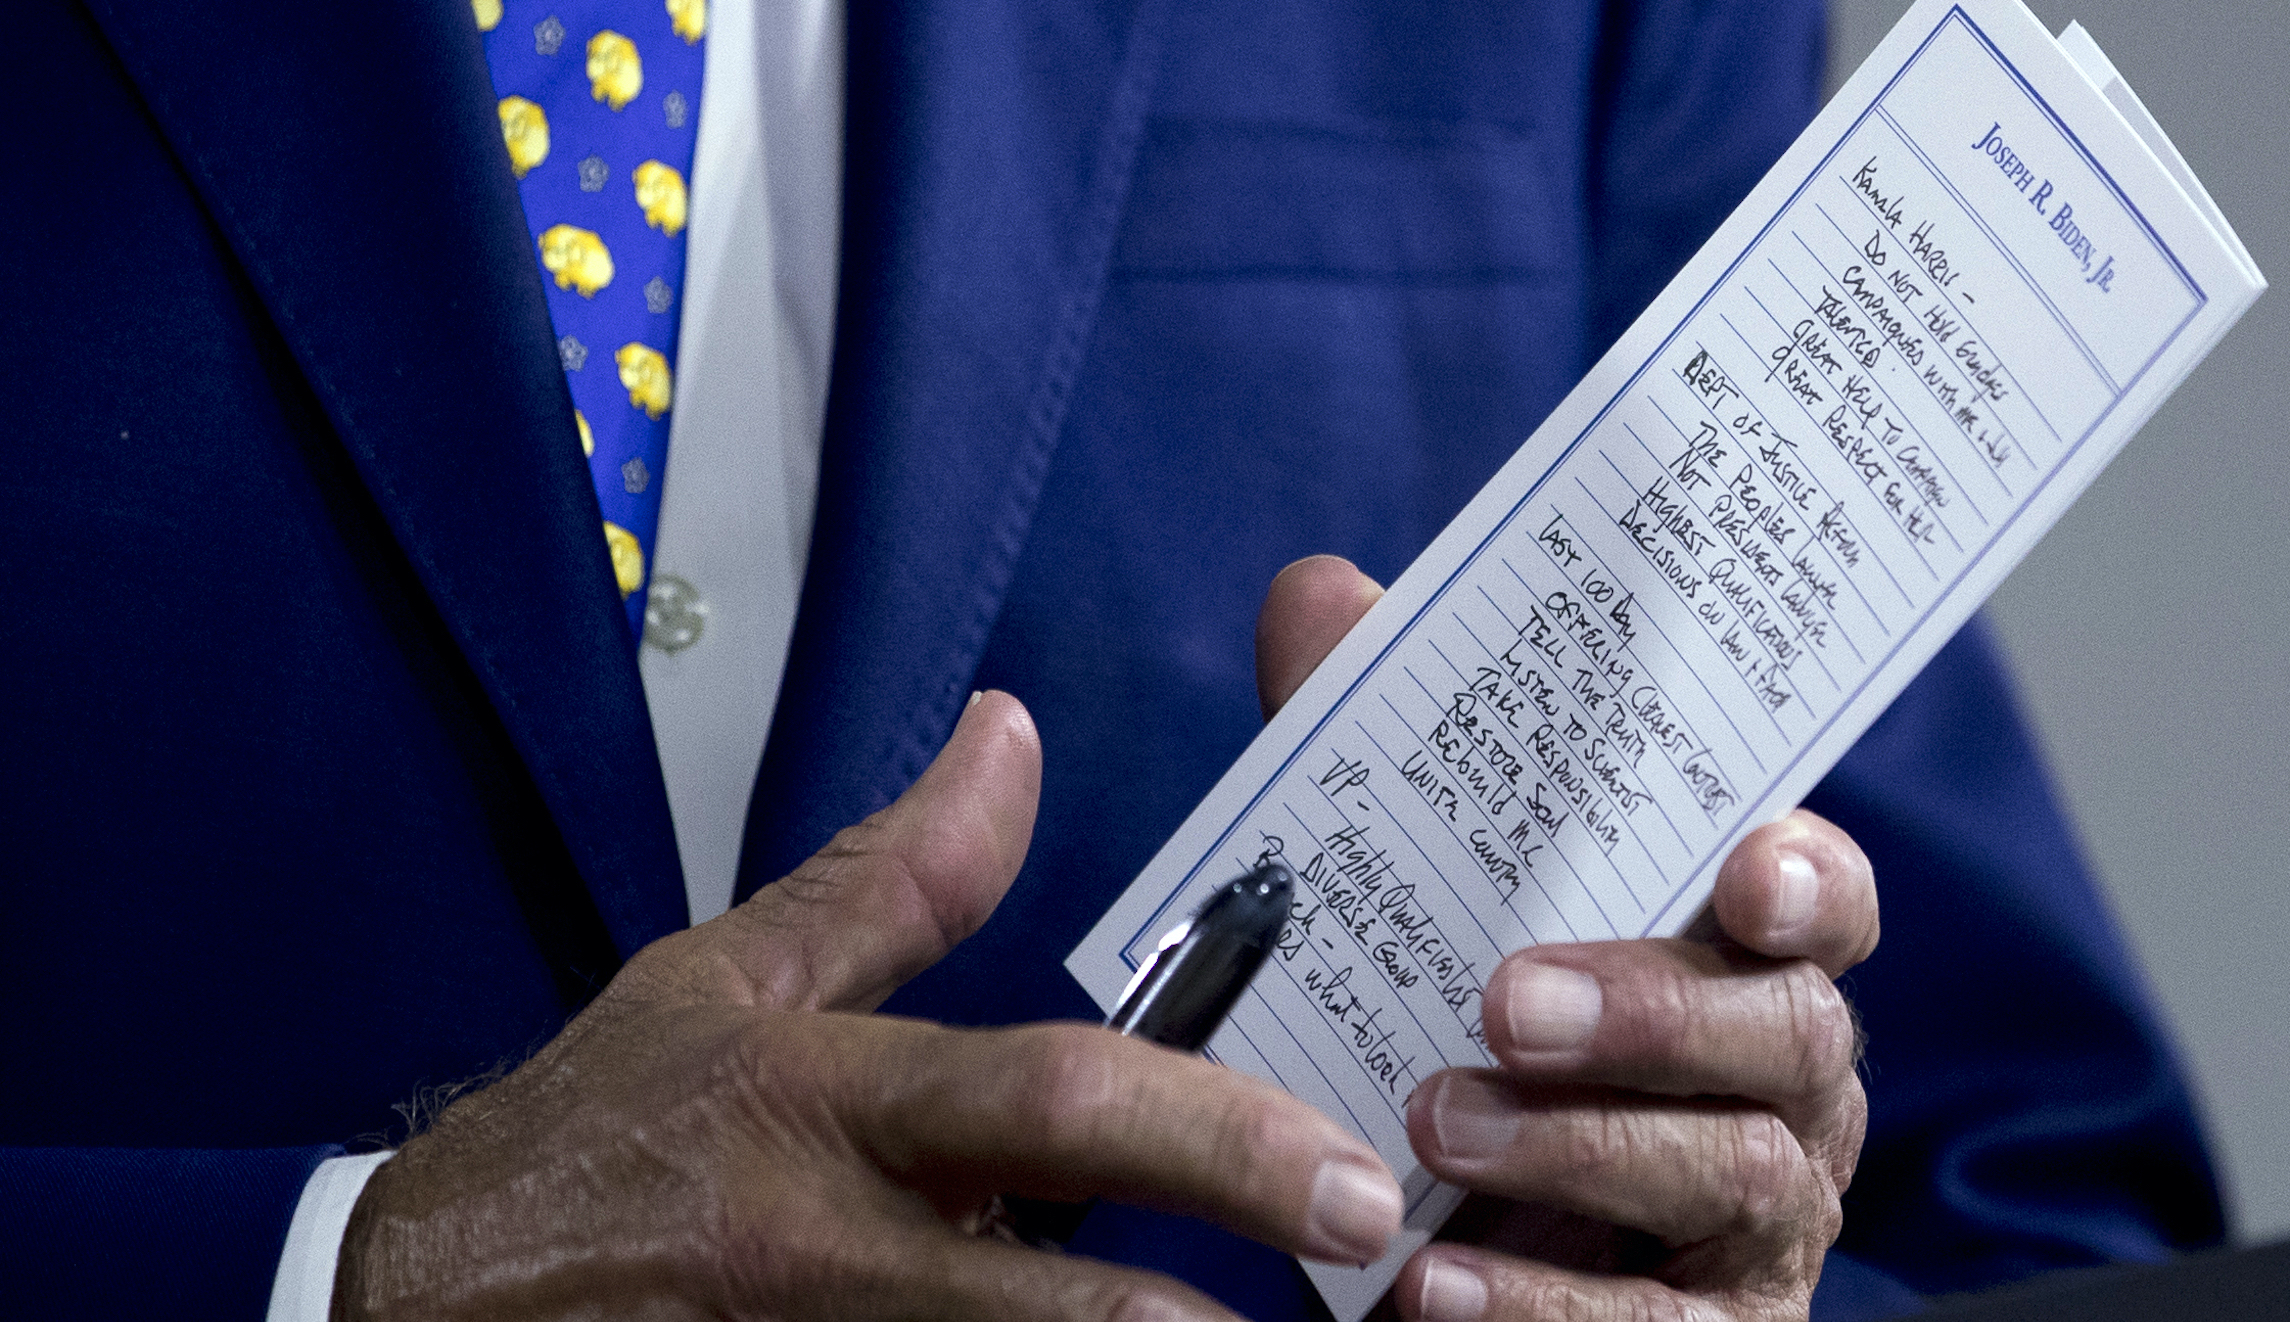 JOSEPH R. BIDEN, JR.
KAMALA HARRIS -
DO NOT HOLD GRUDGES
CAMPAIGNED WITH ME &
TALENTED.
GREAT HELP TO CAMPAIGN
GREAT RESPECT FOR HER
DEPT OF JUSTICE REFORM
THE PEOPLES LAWYER
NOT PRESIDENTS LAWYER
HIGHEST QUALIFICATIONS
DECISIONS ON LAW + FACT
LAST 100 DAY
OFFERING CLEAREST CONTRAST
TELL THE TRUTH
LISTEN TO SCIENTIST
TAKE RESPONSIBILITY
RESTORE SOUL
REBUILD MC
UNITE COUNTRY
VP-
HIGHLY QUALIFIED
DIVERSE GROUP
what to look